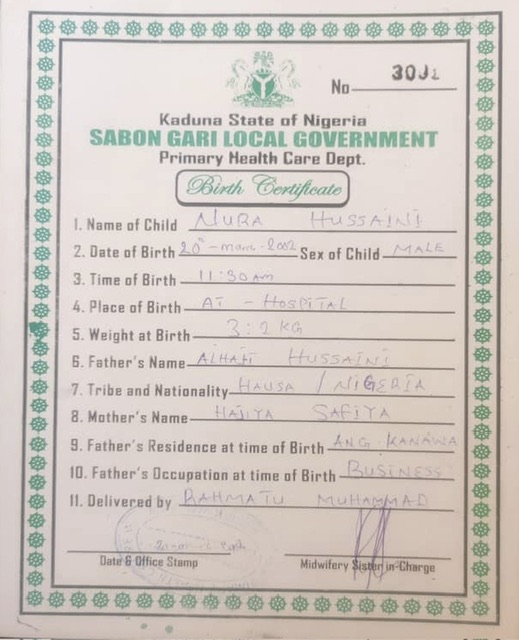 No 30
Kaduna State of Nigeria
SABON GARI LOCAL GOVERNMENT
Primary Health Care Dept.
Birth Certificate
1. Name of Child NURA HUSSAINI
2. Date of Birth 20th - - 2002 Sex of Child MALE
3. Time of Birth 11:30 AM
4. Place of Birth AT - HOSPITAL
5. Weight at Birth 3:2 KG
6. Father's Name ALHAJI HUSSAINI
7. Tribe and Nationality HAUSA / NIGERIA
8. Mother's Name HAJIYA SAFIYA
9. Father's Residence at time of Birth ANG KANAWA
10. Father's Occupation at time of Birth BUSINESS
11. Delivered by RAHMATU MUHAMMAD
Date & Office Stamp
Midwifery Sister in-Charge